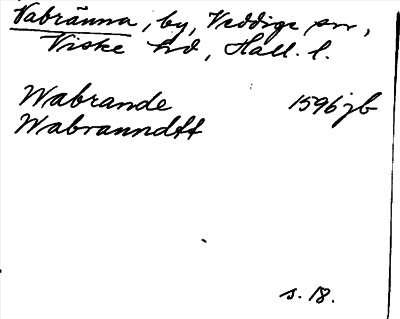 Vabränna, by, Veddige sn,
Viske hd, Hall. l.
Wabrande 1596 jb
Wabranndtt
s. 18.